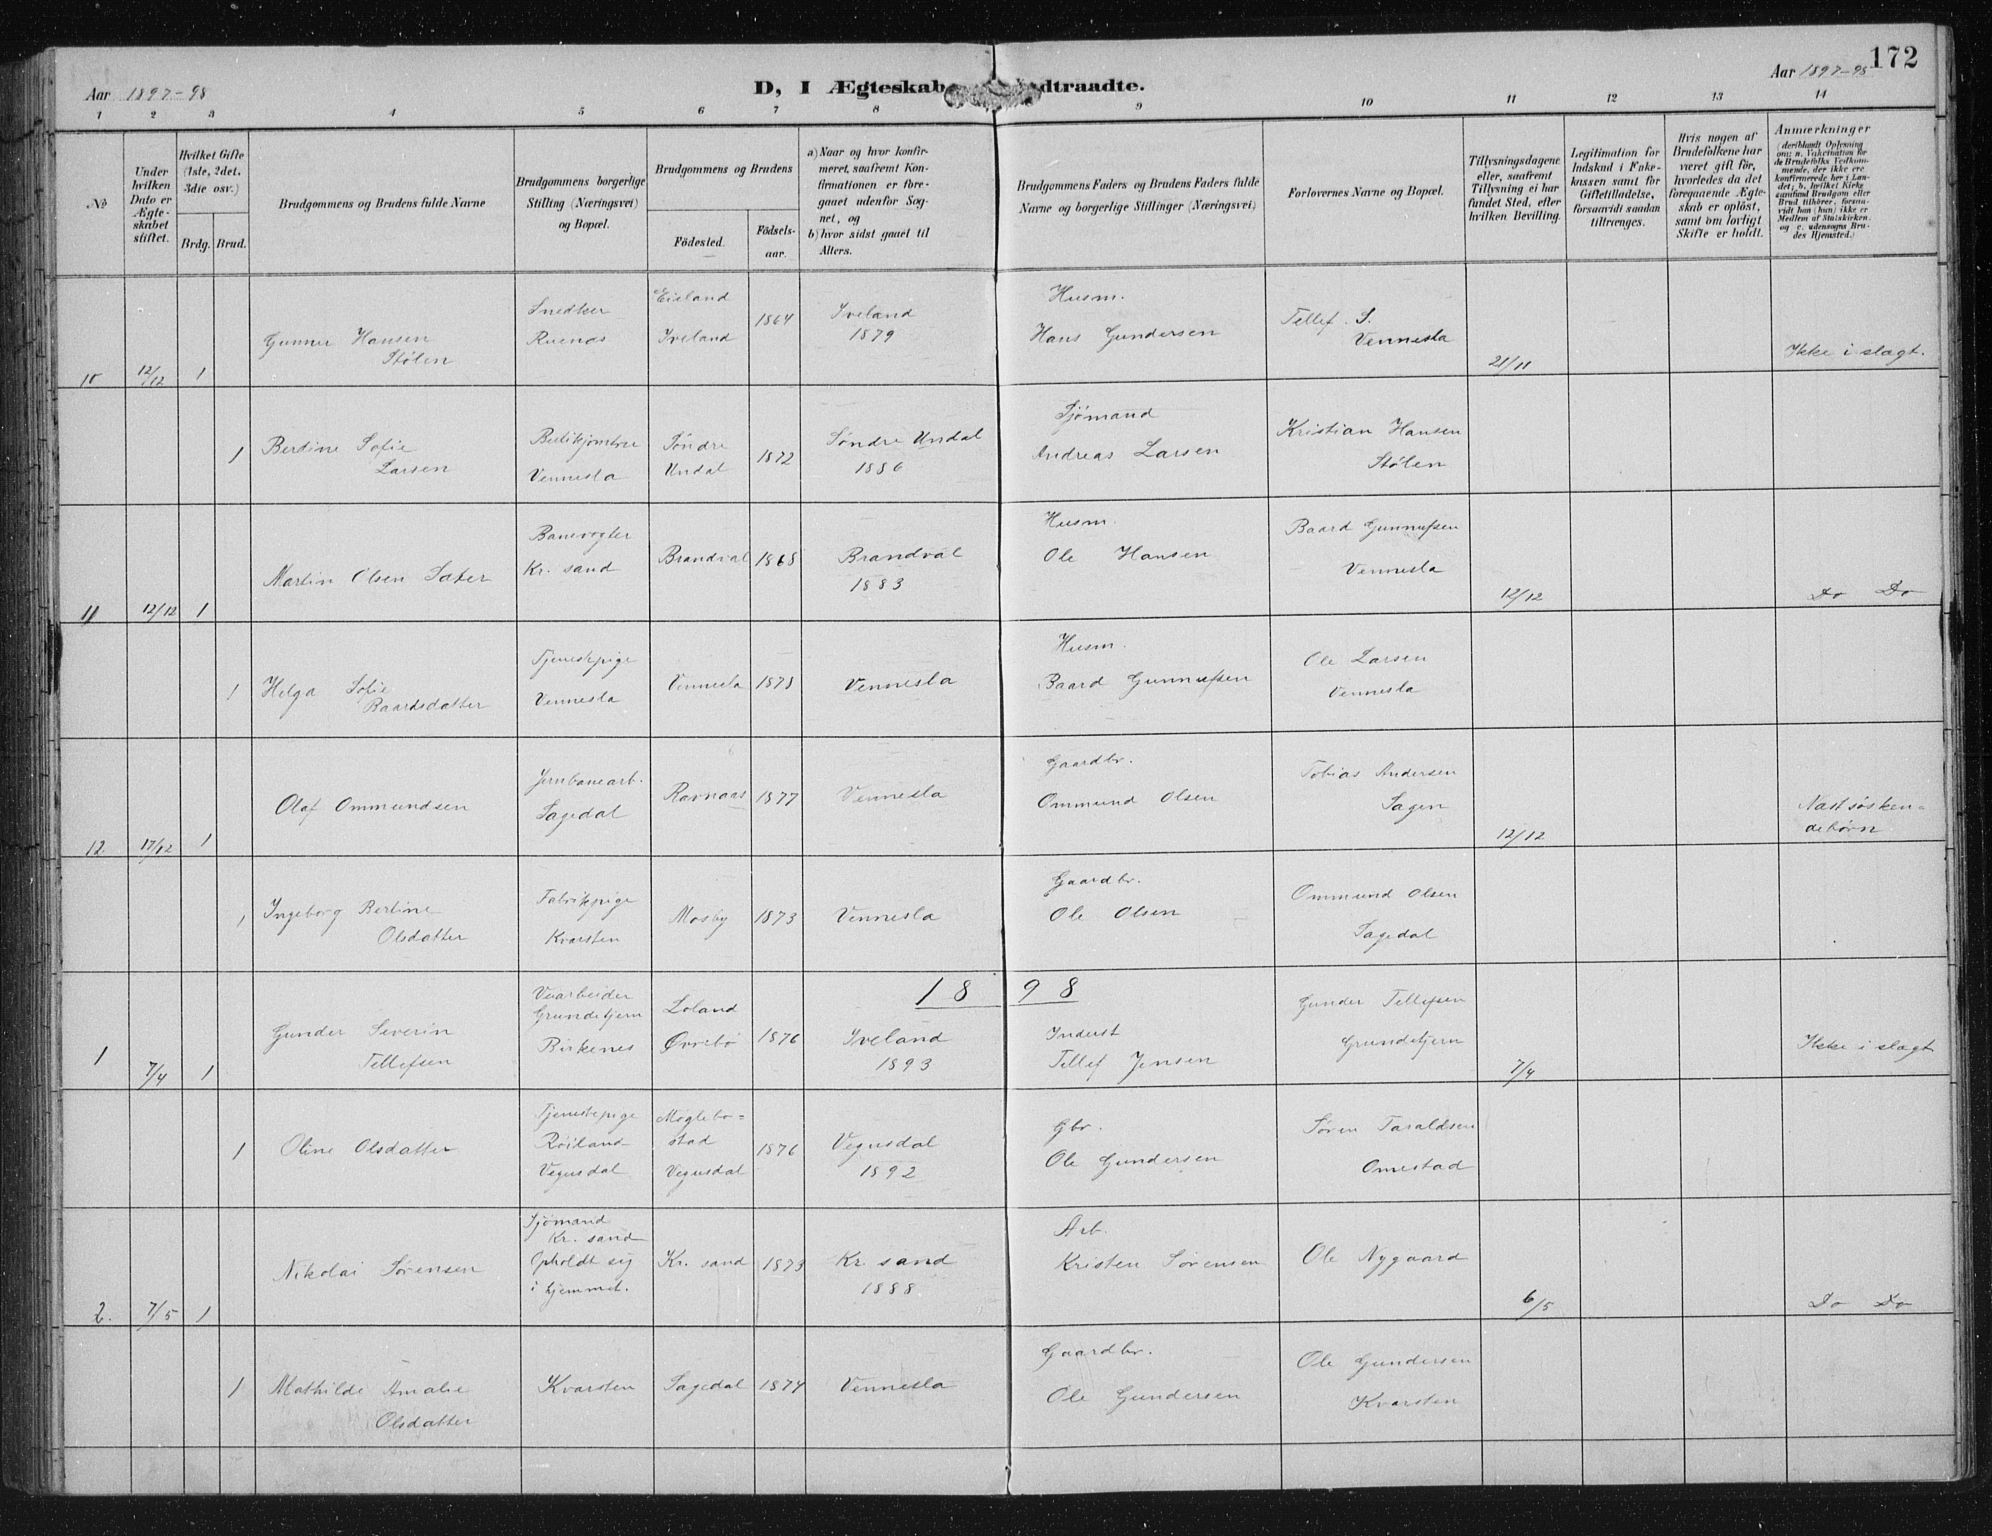 172
Aar 1897-98
D, I Ægteskab
dtraadte.
Aar 1897-98
1 2 3 4 5 6 7 8 9 10 11 12 13 14
No
Under hvilken Dato er Ægteskabet stiftet.
Hvilket Gifte (1ste, 2det, 3die osv.)
Brdg. Brud.
Brudgommens og Brudens fulde Navne
Brudgommens borgerlige Stilling (Næringsvei) og Bopæl.
Brudgommens og Brudens
Fødested.
Fødselsaar.
a) Naar og hvor konfirmeret, saafremt Konfirmationen er foregaaet udenfor Sognet, og
b) hvor sidst gaaet til Alters.
Brudgommens Faders og Brudens Faders fulde Navne og borgerlige Stillinger (Næringsvei)
Forlovernes Navne og Bopæl.
Tillysningsdagene eller, saafremt Tillysning ei har fundet Sted, efter hvilken Bevilling.
Legitimation for Indskud i Enkekassen samt for Giftetilladelse, forsaavidt saadan tiltrænges.
Hvis nogen af Brudefolkene har været gift før, hvorledes da det foregaaende Ægteskab er opløst, samt om lovligt Skifte er holdt.
Anmærkninger
(deriblandt Oplysning om: a. Vakcination for de Brudefolks Vedkommende, der ikke ere konfirmerede her i Landet; b. hvilket Kirkesamfund Brudgom eller Brud tilhører, forsaavidt han (hun) ikke er Medlem af Statskirken, og c. udensogns Brudes Hjemsted.)
10 12/12 1 Gunner Hansen Stølen
Snedker Ruenes
Eieland Iveland 1864
Iveland 1879
Husm. Hans Gundersen
Tellef S. Vennesla
21/11
Ikke i slagt.
1 Berdine Sofie Larsen
Vennesla
Søndre Undal 1872
Søndre Undal 1886
Sjømand Andreas Larsen
Kristian Hansen Stølen
11 12/12 1 Martin Olsen Sater
Banevogter Kr. sand
Brandval 1868
Brandval 1883
Husm. Ole Hansen
Baard Gunnufsen Vennesla
12/12
Do Do
1 Helga Sofie Baardsdatter
Tjenestepige Vennesla
Vennesla 1878
Vennesla
Husm. Baard Gunnufsen
Ole Larsen Vennesla
12. 17/12 1 Olaf Ommundsen
Jernbanearb. Sagedal
Ravnaas 1877
Vennesla
Gaardbr. Ommund Olsen
Tobias Andersen Sagen
12/12
Næstsøsken=
debørn
1 Ingeborg Bertine Olsdatter
Fabrikpige Kvarsten
Mosby 1873
Vennesla
Gaardbr. Ole Olsen
Ommund Olsen Sagedal
1898
1 7/4 1 Gunder Severin Tellefsen
Veiarbeider Grundetjern Birkenes
Loland Øvrebø 1876
Iveland 1893
Inderst Tellef Jensen
Gunder Tellefsen Grundetjern
7/4
Ikke i slagt
1 Oline Olsdatter
Tjenestepige Røiland Vegusdal
Møglebo=
stad Vegusdal 1876
Vegusdal 1892
Gbr. Ole Gundersen
Søren Taraldsen Omestad
2. 7/5 1 Nikolai Sørensen
Sjømand Kr. sand
Opholdt sig i hjemmet.
Kr. sand 1873
Kr. sand 1888
Arb. Kristen Sørensen
Ole Nygaard
6/5
Do Do
1 Mathilde Amalie Olsdatter
Kvarsten
Sagedal 1874
Vennesla
Gaardbr. Ole Gundersen
Ole Gundersen Kvarsten